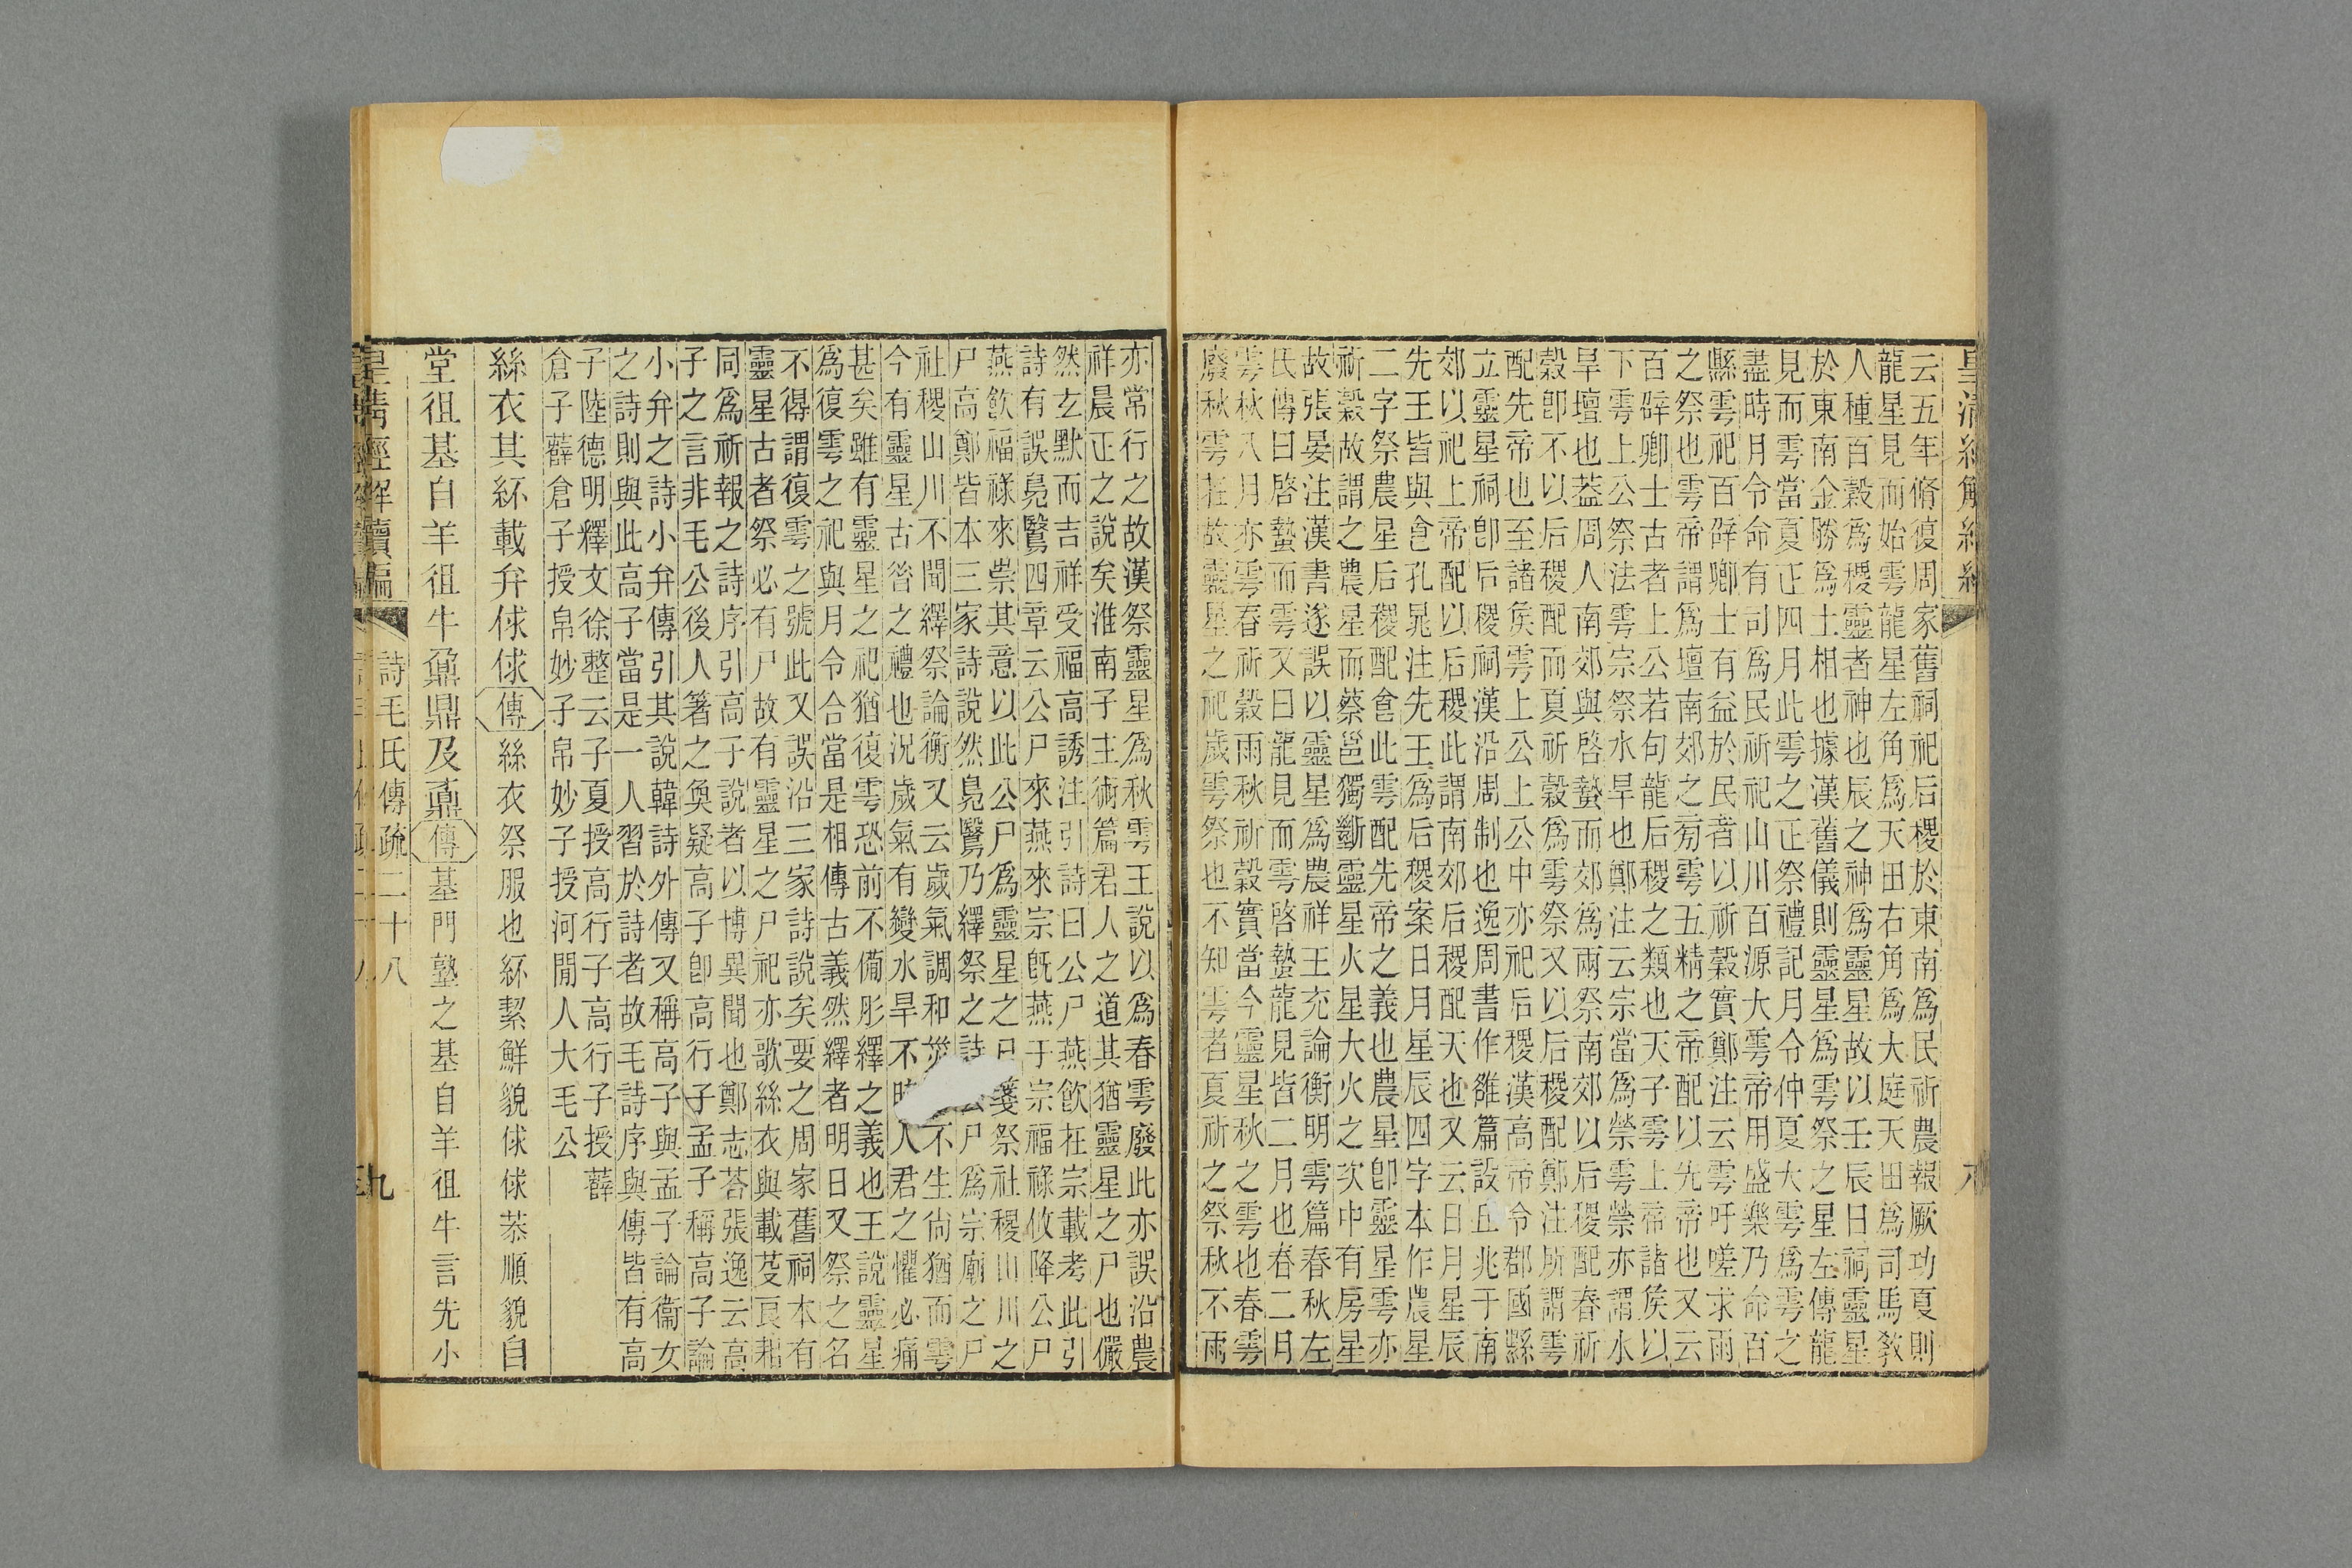 云五年脩復周家舊祠祀后稷於東南為民祈農報厥功夏則
龍星見而始雩龍星左角為天田右角為大庭天田為司馬教
人種百穀為稷靈者神也辰之神為靈星故以壬辰日祠靈星
於東南金勝為土相也據漢舊儀則靈星為雩祭之星左傳龍
見而雩當夏正四月此雩之正祭禮記月令仲夏大雩為雩之
盡時月令命有司為民祈祀山川百源大雩帝用盛樂乃命百
縣雩祀百辟卿士有益於民者以祈穀實鄭注云雩吁嗟求雨
之祭也雩帝謂為壇南郊之旁雩五精之帝配以先帝也又云
百辟卿士古者上公若句龍后稷之類也天子雩上帝諸矦以
下雩上公祭法雩宗祭水旱也鄭注云宗當為禜雩禜亦謂水
旱壇也葢周人南郊與啓蟄而郊為兩祭南郊以后稷配春祈
穀卽不以后稷配而夏祈穀為雩祭又以后稷配鄭注所謂雩
配先帝也至諸矦雩上公上公中亦祀后稷漢高帝令郡國縣
立靈星祠卽后稷祠漢沿周制也逸周書作雒篇設丘兆于南
郊以祀上帝配以后稷此謂南郊后稷配天也又云日月星辰
先王皆與㑹孔晁注先王為后稷案日月星辰四字本作農星
二字祭農星后稷配㑹此雩配先帝之義也農星卽靈星雩亦
祈穀故謂之農星而蔡邕獨斷靈星火星大火之次中有房星
故張晏注漢書遂誤以靈星為農祥王充論衡明雩篇春秋左
氏傳曰啓蟄而雩又曰龍見而雩啓蟄龍見皆二月也春二月
雩秋八月亦雩春祈穀雨秋祈穀實當今靈星秋之雩也春雩
廢秋雩在故靈星之祀歲雩祭也不知雩者夏祈之祭秋不雨
亦常行之故漢祭靈星為秋雩王說以為春雩廢此亦誤沿農
祥晨正之說矣淮南子主術篇君人之道其猶靈星之尸也儼
然玄默而吉祥受福高誘注引詩曰公尸燕飲在宗載考此引
詩有誤鳧鷖四章云公尸來燕來宗旣燕于宗福祿攸降公尸
燕飲福祿來崇其意以此公尸為靈星之尸箋祭社稷山川之
尸高鄭皆本三家詩說然鳧鷖乃繹祭之詩云尸為宗廟之尸
社稷山川不聞繹祭論衡又云歲氣調和災不生尙猶而雩
今有靈星古昝之禮也況歲氣有變水旱不時人君之懼必痛
甚矣雖有靈星之祀猶復雩恐前不備肜繹之義也王說靈星
為復雩之祀與月令合當是相傳古義然繹者明日又祭之名
不得謂復雩之號此又誤沿三家詩說矣要之周家舊祠本有
靈星古者祭必有尸故有靈星之尸祀亦歌絲衣與載芟良耜
同為祈報之詩序引高子說者以博異聞也鄭志荅張逸云高
子之言非毛公後人箸之奐疑高子卽高行子孟子稱高子論
小弁之詩小弁傳引其說韓詩外傳又稱高子與孟子論衞女
之詩則與此高子當是一人習於詩者故毛詩序與傳皆有高
子陸德明釋文徐整云子夏授高行子高行子授薛
倉子薛倉子授帛妙子帛妙子授河閒人大毛公
絲衣其紑載弁俅俅傳絲衣祭服也紑絜鮮貌俅俅恭順貌自
堂徂基自羊徂牛鼐鼎及鼒傳基門塾之基自羊徂牛言先小
皇清經解續編
詩毛氏傳疏二十八
九